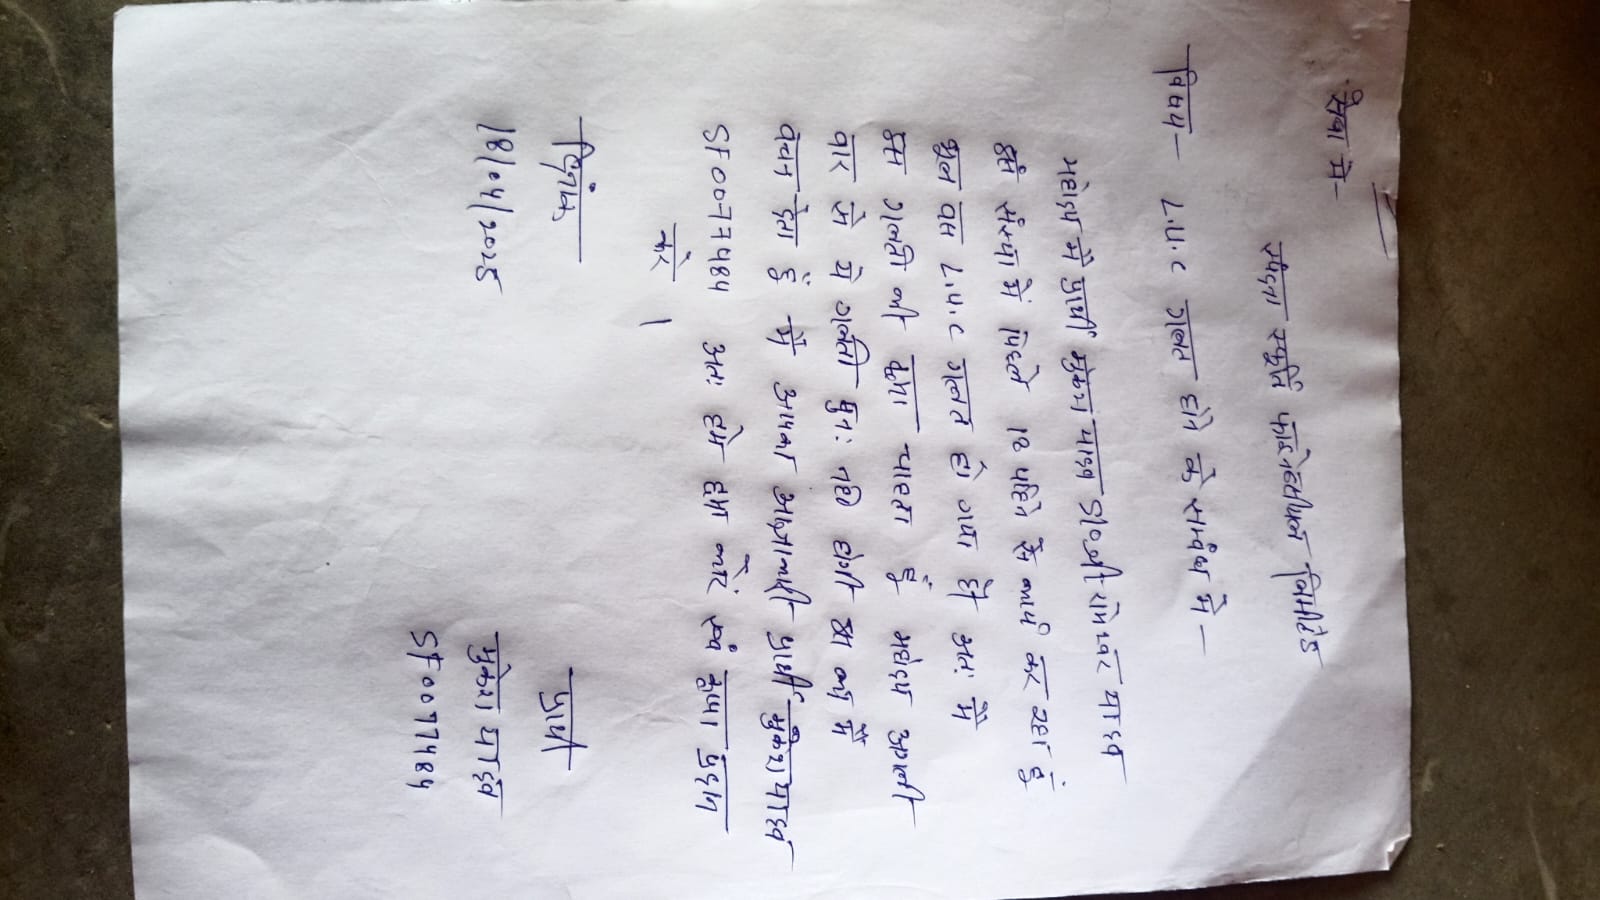 सेवा में-
स्पंदना स्फूर्ति फाईनेंसियल लिमिटेड
विषय- L.U.C गलत होने के सम्बंध में-
महोदय मैं प्रार्थी मुकेश यादव S/O श्री रामेश्वर यादव
इस संस्था में पिछले 12 महिने से कार्य कर रहा हूं
भूल वस L.U.C गलत हो गया है अतः मैं
इस गलती की क्षमा चाहता हूं महोदय अगली
बार से ये गलती पुनः नही होगी इस का मैं
वचन देता हूं मैं आपका आज्ञाकारी प्रार्थी मुकेश यादव
SF0077484 अतः हमे क्षमा करें एवं कृपा प्रदान
करे।
दिनांक
18/04/2025
प्रार्थी
मुकेश यादव
SF0077484